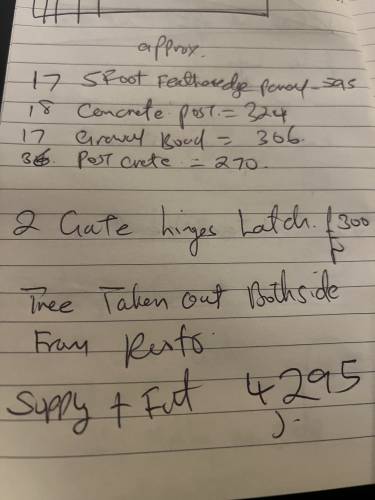 approx.
17 5 Foot Featheredge panel - 595
18 Concrete post. = 324
17 Gravel Boad = 306.
36 Post crete = 270.
2 Gate hinges Latch. £300
Tree Taken out Bothside
From
Supply + Fit 4295